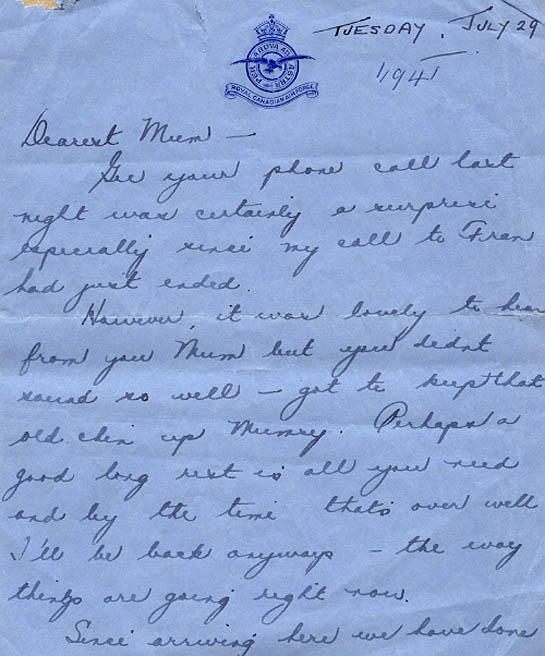 TUESDAY, JULY 29
1941
PER ARDUA AD ASTRA
ROYAL CANADIAN AIR FORCE
Dearest Mum —
Gee your phone call last
night was certainly a surprise
especially since my call to Fran
had just ended.
However, it was lovely to hear
from you Mum but you didnt
sound so well — got to keep that
old chin up Mumsy. Perhaps a
good long rest is all you need
and by the time thats over well
I'll be back anyways — the way
things are going right now.
Since arriving here we have done